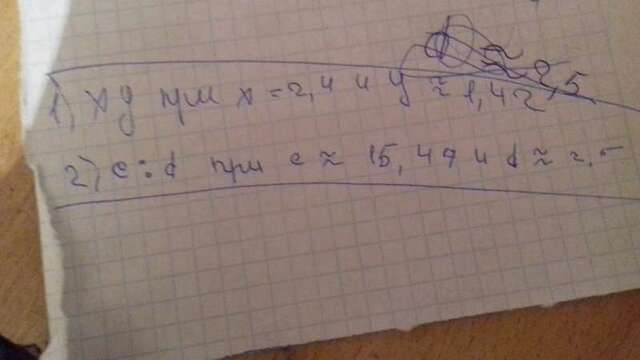 1) xy при x = 2,4 и y ≈ 1,42
2) c:d при c ≈ 15,49 и d ≈ 2,5